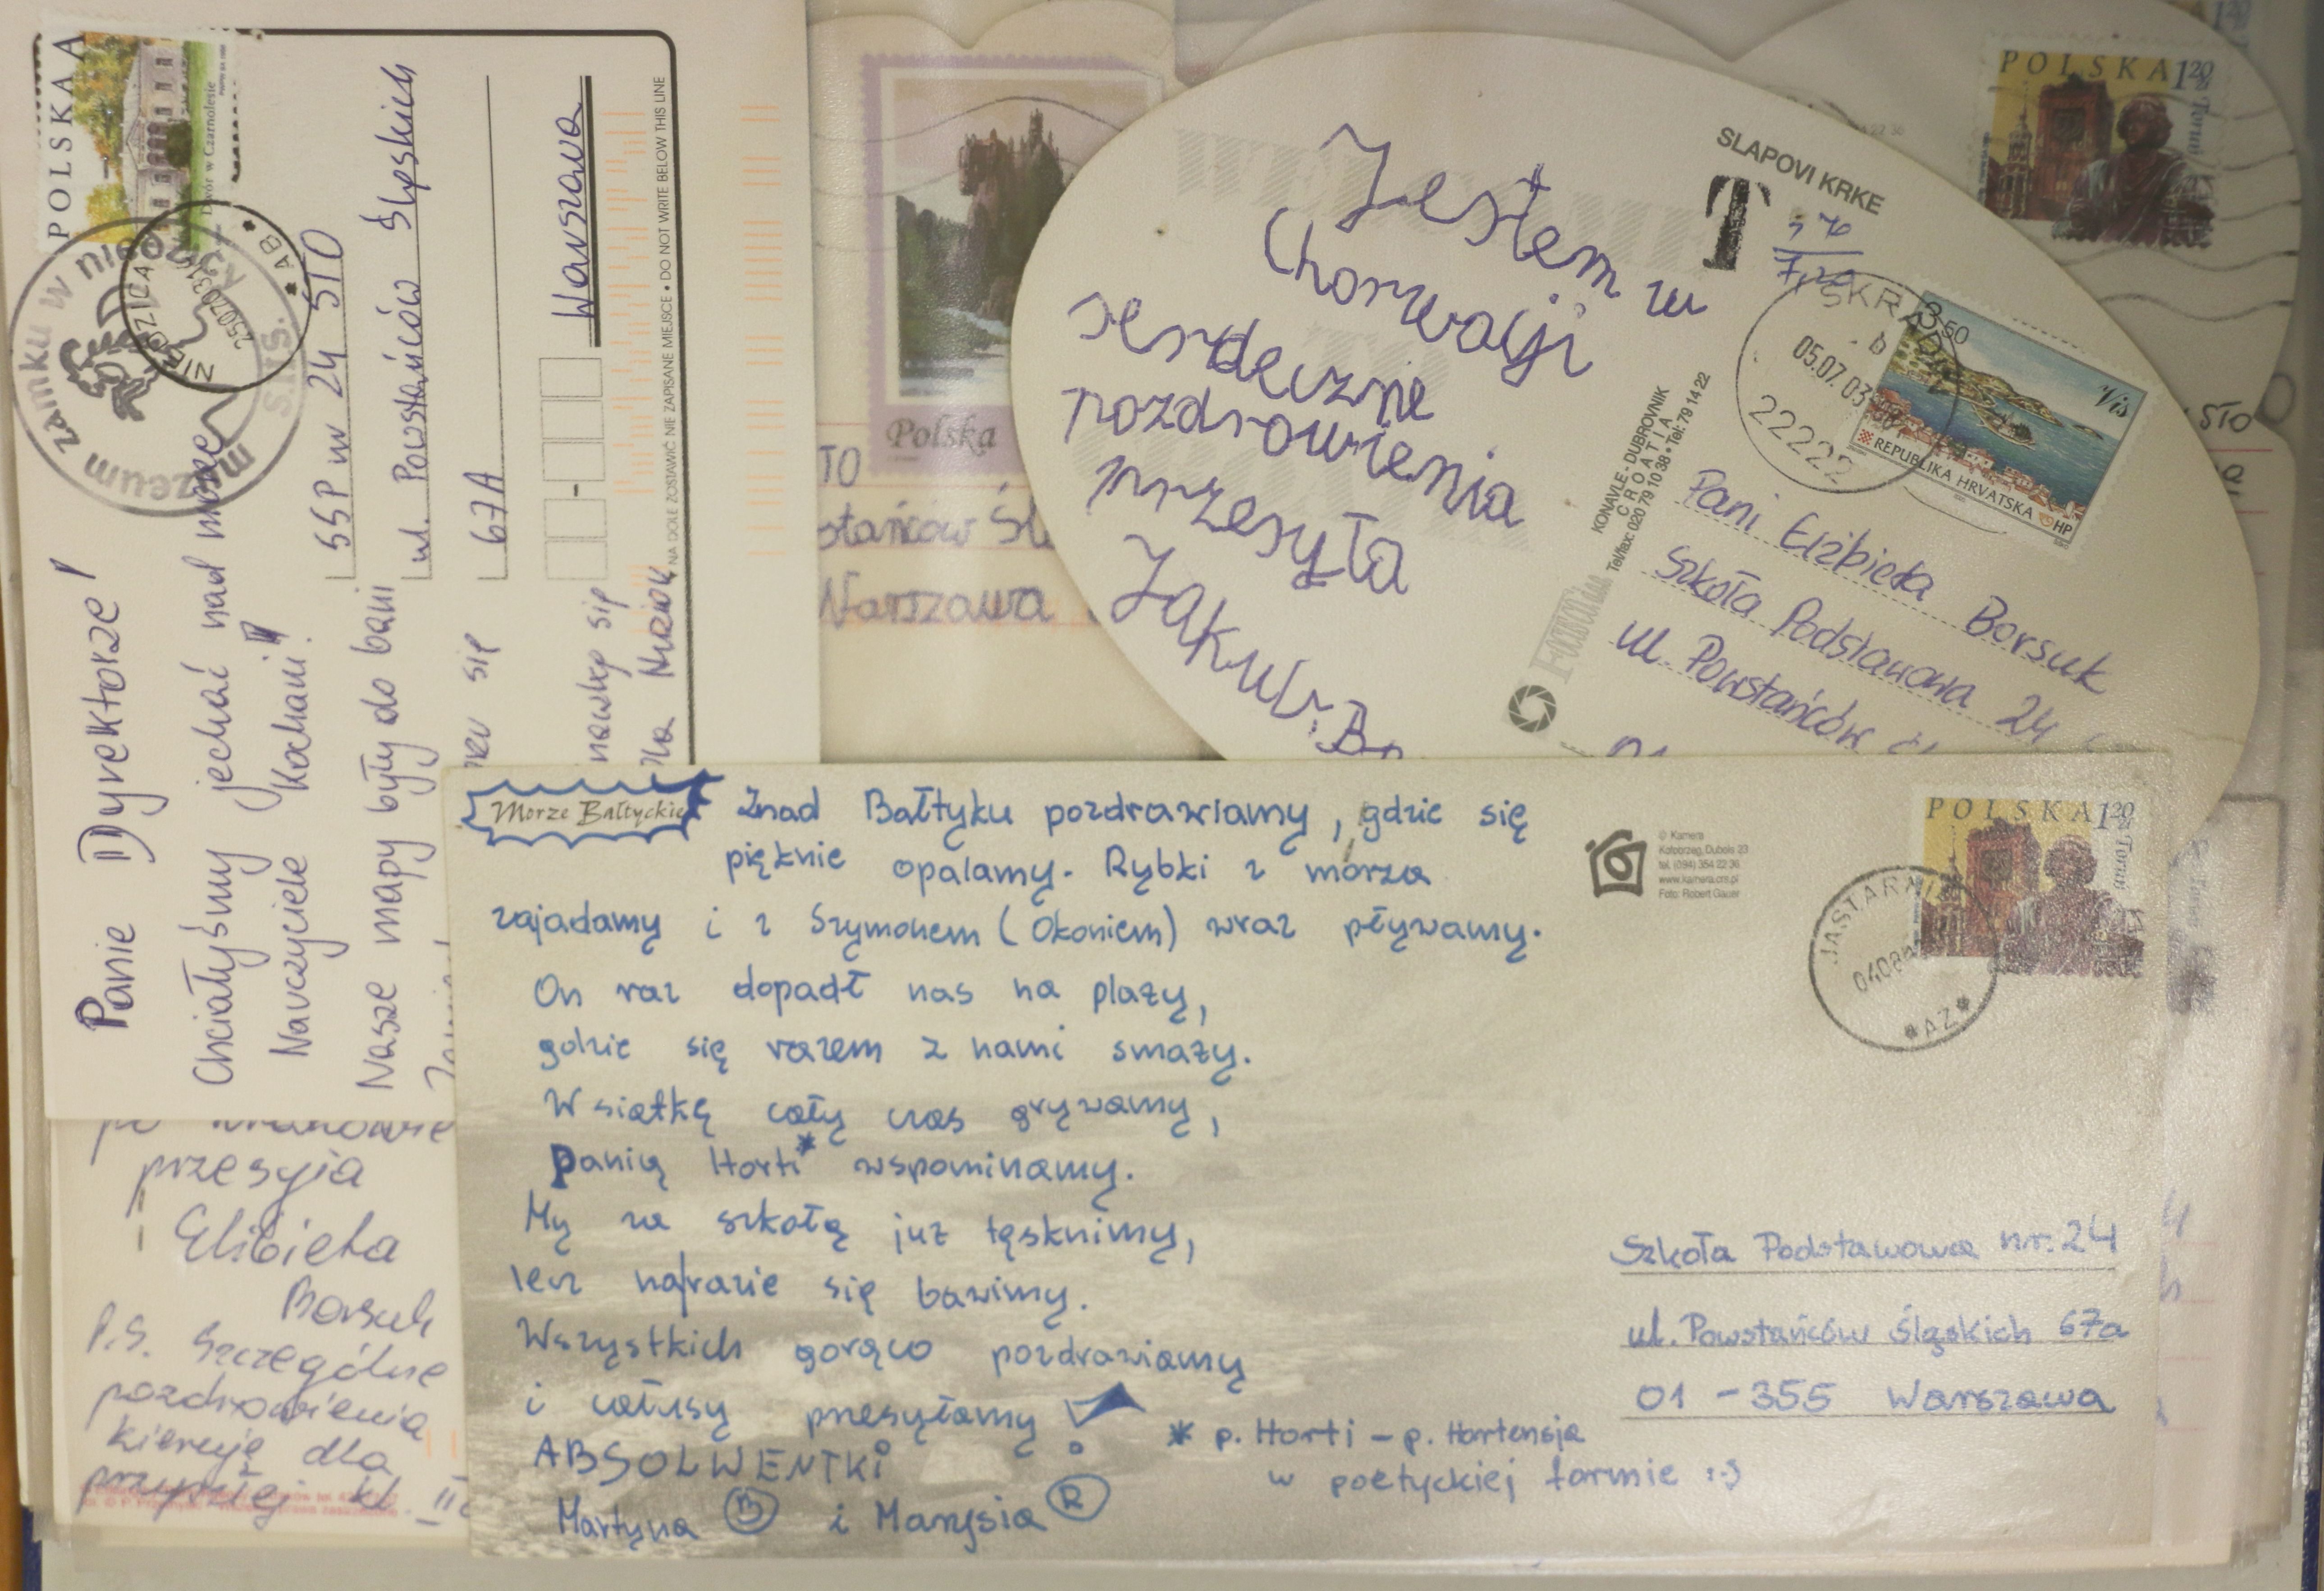 POLSKA A
Dwór w Czarnolesie
muzeum zamku w niedzicy
S.H.S.
NIEDZICA
AB
Panie Dyrektorze!
Chciałyśmy jechać nad morze
Nauczyciele Kochani!
Nasze mapy były do bani
się
nawkę się
dla
SSP nr 24 STO
ul. Powstańców Śląskich
67A
Warszawa
NA DOLE ZOSTAWIĆ NIE ZAPISANE MIEJSCE • DO NOT WRITE BELOW THIS LINE
Polska
TO
stańców Ślą
Warszawa
Jestem w
Chorwacji
serdeczne
pozdrowienia
przesyła
Jakub B
SLAPOVI KRKE
T
SKRADIN
05.07.03
22222
3,50
Vis
REPUBLIKA HRVATSKA
HP
KONAVLE - DUBROVNIK
CROATIA
Tel/fax: 020 79 10 38 • Tel: 79 14 22
Pani Elżbieta Borsuk
Szkoła Podstawowa 24
ul. Powstańców
POLSKA 120 zł
Toruń
STO
przesyła
Elżbieta
Borsuk
P.S. Szczególne
pozdrowienia
kieruję dla
przyszłej kl. II
Morze Bałtyckie
Znad Bałtyku pozdrawiamy, gdzie się
pięknie opalamy. Rybki z morza
zajadamy i z Szymonem (Okoniem) wraz pływamy.
On raz dopadł nas na plaży,
gdzie się razem z nami smaży.
W siatkę cały czas grywamy,
Panią Horti* wspominamy.
My za szkołą już tęsknimy,
lecz narazie się bawimy.
Wszystkich gorąco pozdrawiamy
i całusy przesyłamy!
ABSOLWENTKI
Martyna B i Marysia R
* p. Horti - p. Hortensja
w poetyckiej formie :-)
© Kamera
Kołobrzeg, Dubois 23
tel. (094) 354 22 36
www.kamera.ors.pl
Foto: Robert Gauer
POLSKA 120 zł
Toruń
JASTARNIA
AZ
Szkoła Podstawowa nr. 24
ul. Powstańców Śląskich 67a
01-355 Warszawa